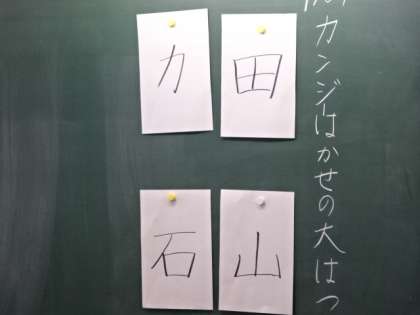 カンジはかせの大はつ
田
力
山
石